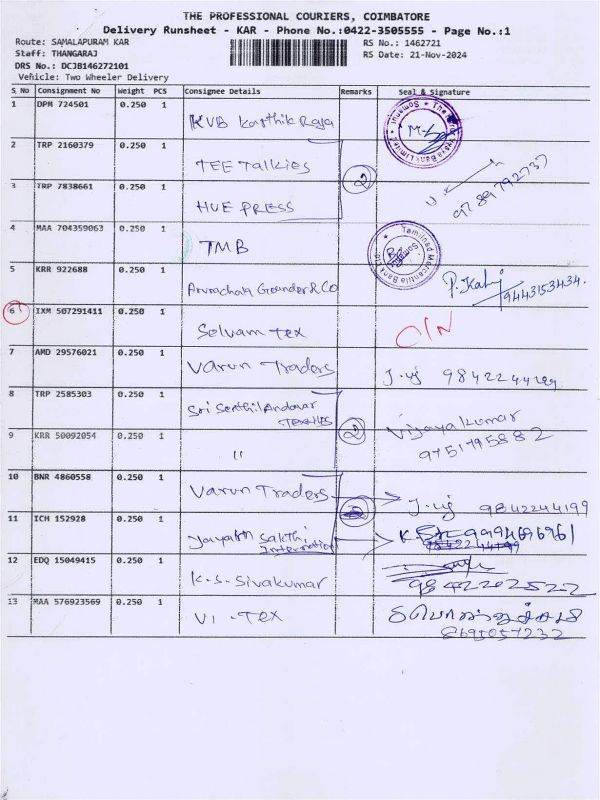 THE PROFESSIONAL COURIERS, COIMBATORE
Delivery Runsheet - KAR - Phone No.:0422-3505555 - Page No.:1
Route: SAMALAPURAM KAR
RS No.: 1462721
Staff: THANGARAJ
RS Date: 21-Nov-2024
DRS No.: DCJB146272101
Vehicle: Two Wheeler Delivery
S No Consignment No Weight PCS Consignee Details Remarks Seal & Signature
1 DPM 724501 0.250 1 KVB Karthik Raja
2 TRP 2160379 0.250 1 TEE Talkies 2
3 TRP 7838661 0.250 1 HUE PRESS 9789792737
4 MAA 704359063 0.250 1 TMB Tamilnad Mercantile Bank Ltd
5 KRR 922688 0.250 1 Arunachala Gounder & Co 9443153434
6 IXM 507291411 0.250 1 Selvam Tex O/N
7 AMD 29576021 0.250 1 Varun Traders 9842244199
8 TRP 2585303 0.250 1 Sri Senthil Andavar Textiles 2 Vijayakumar
9 KRR 50092054 0.250 1 " 9751795882
10 BNR 4860558 0.250 1 Varun Traders 9842244199
11 ICH 152928 0.250 1 Sakthi International 9994696961
12 EDQ 15049415 0.250 1 K.S. Sivakumar 9842202522
13 MAA 576923569 0.250 1 VI . Tex 8695057232